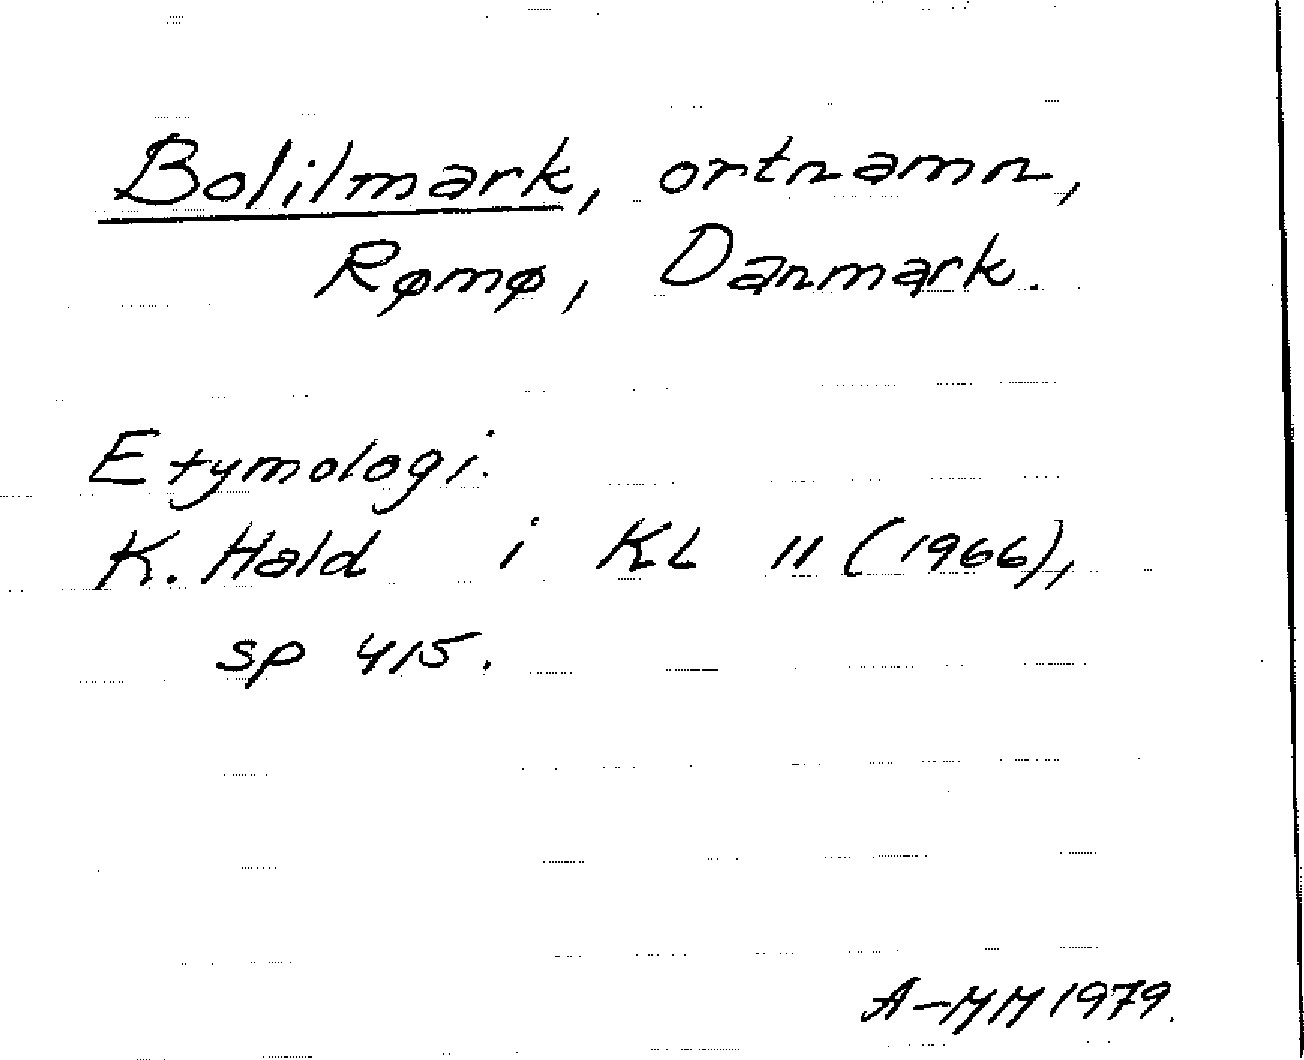 Bolilmark, ortnamn,
Rømø, Danmark.
Etymologi.
K. Hald i KL 11 (1966),
sp 415.
A-MM 1979.